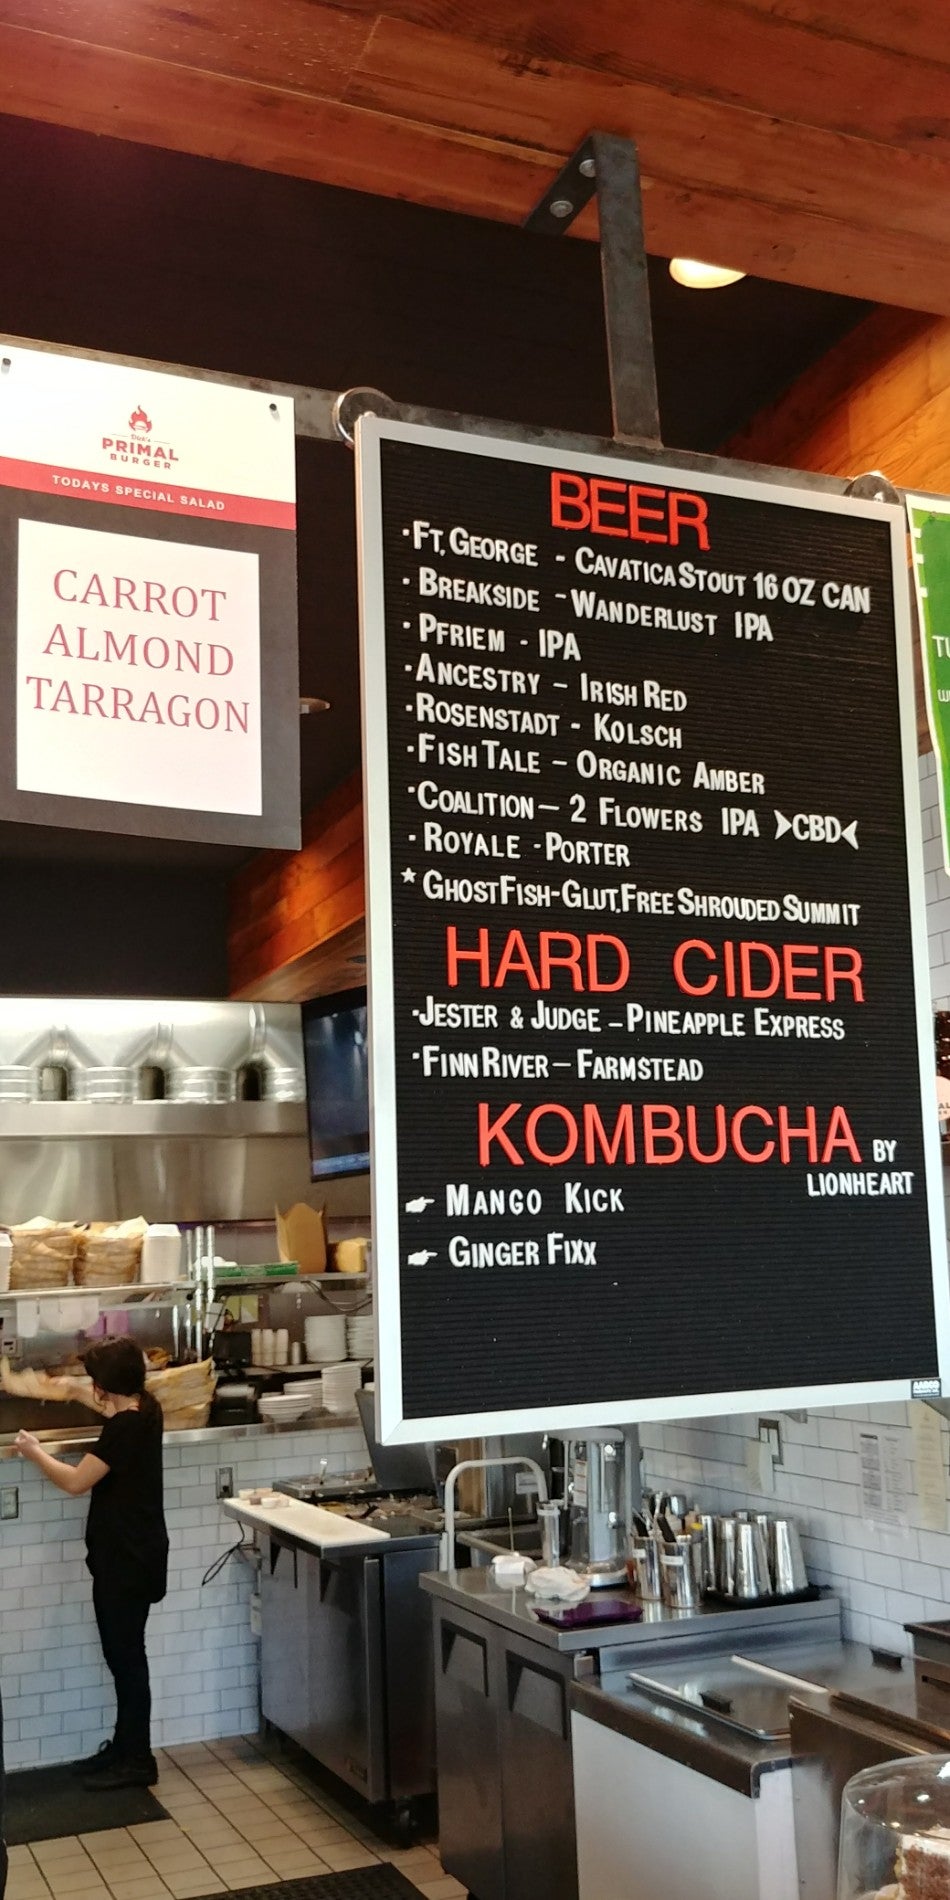 Dick's
PRIMAL
BURGER
TODAYS SPECIAL SALAD
CARROT
ALMOND
TARRAGON
BEER
·FT. GEORGE - CAVATICA STOUT 16 OZ CAN
·BREAKSIDE - WANDERLUST IPA
·PFRIEM - IPA
·ANCESTRY - IRISH RED
·ROSENSTADT - KOLSCH
·FISH TALE - ORGANIC AMBER
·COALITION - 2 FLOWERS IPA >CBD<
·ROYALE - PORTER
*GHOSTFISH-GLUT.FREE SHROUDED SUMMIT
HARD CIDER
·JESTER & JUDGE - PINEAPPLE EXPRESS
·FINNRIVER - FARMSTEAD
KOMBUCHA BY
LIONHEART
☛ MANGO KICK
☛ GINGER FIXX